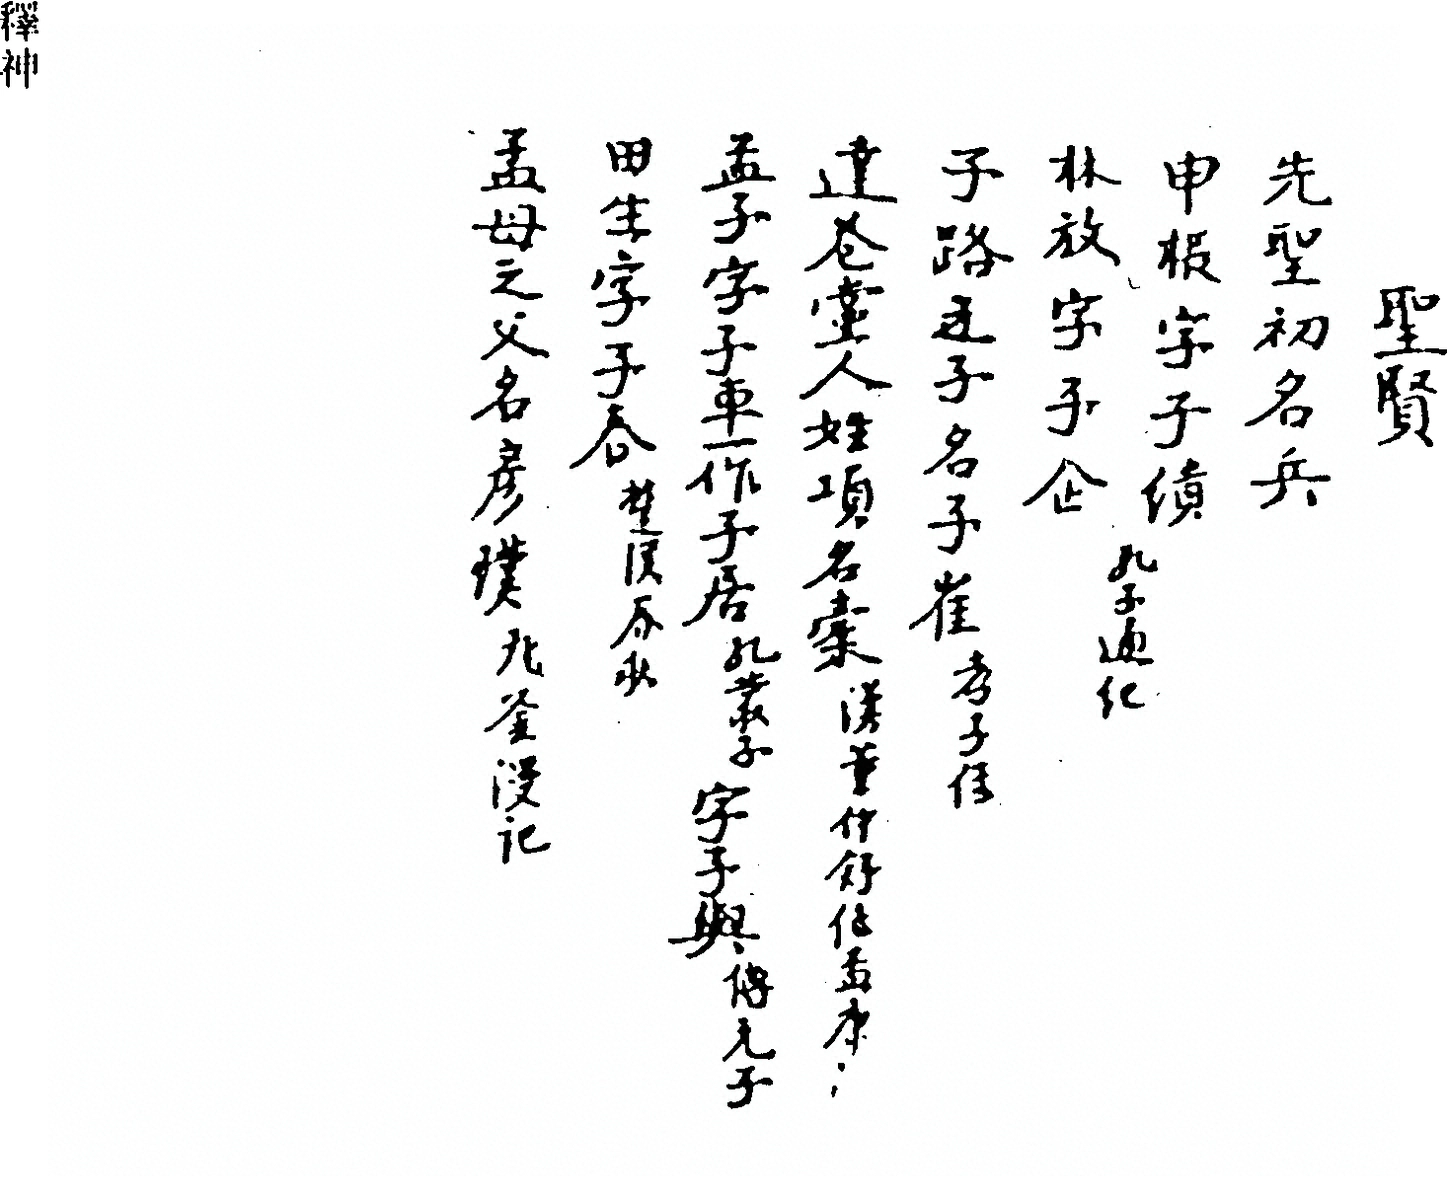 聖賢
先聖初名兵
申棖字子續 孔子通紀
林放字子企
子路之子名子崔 孝子傳
達巷黨人姓項名橐 漢董仲舒傳孟康
孟子字子車一作子居 孔叢子 字子輿 傅元子
田生字子春 楚漢春秋
孟母之父名彥璞 九釜漫記
釋神